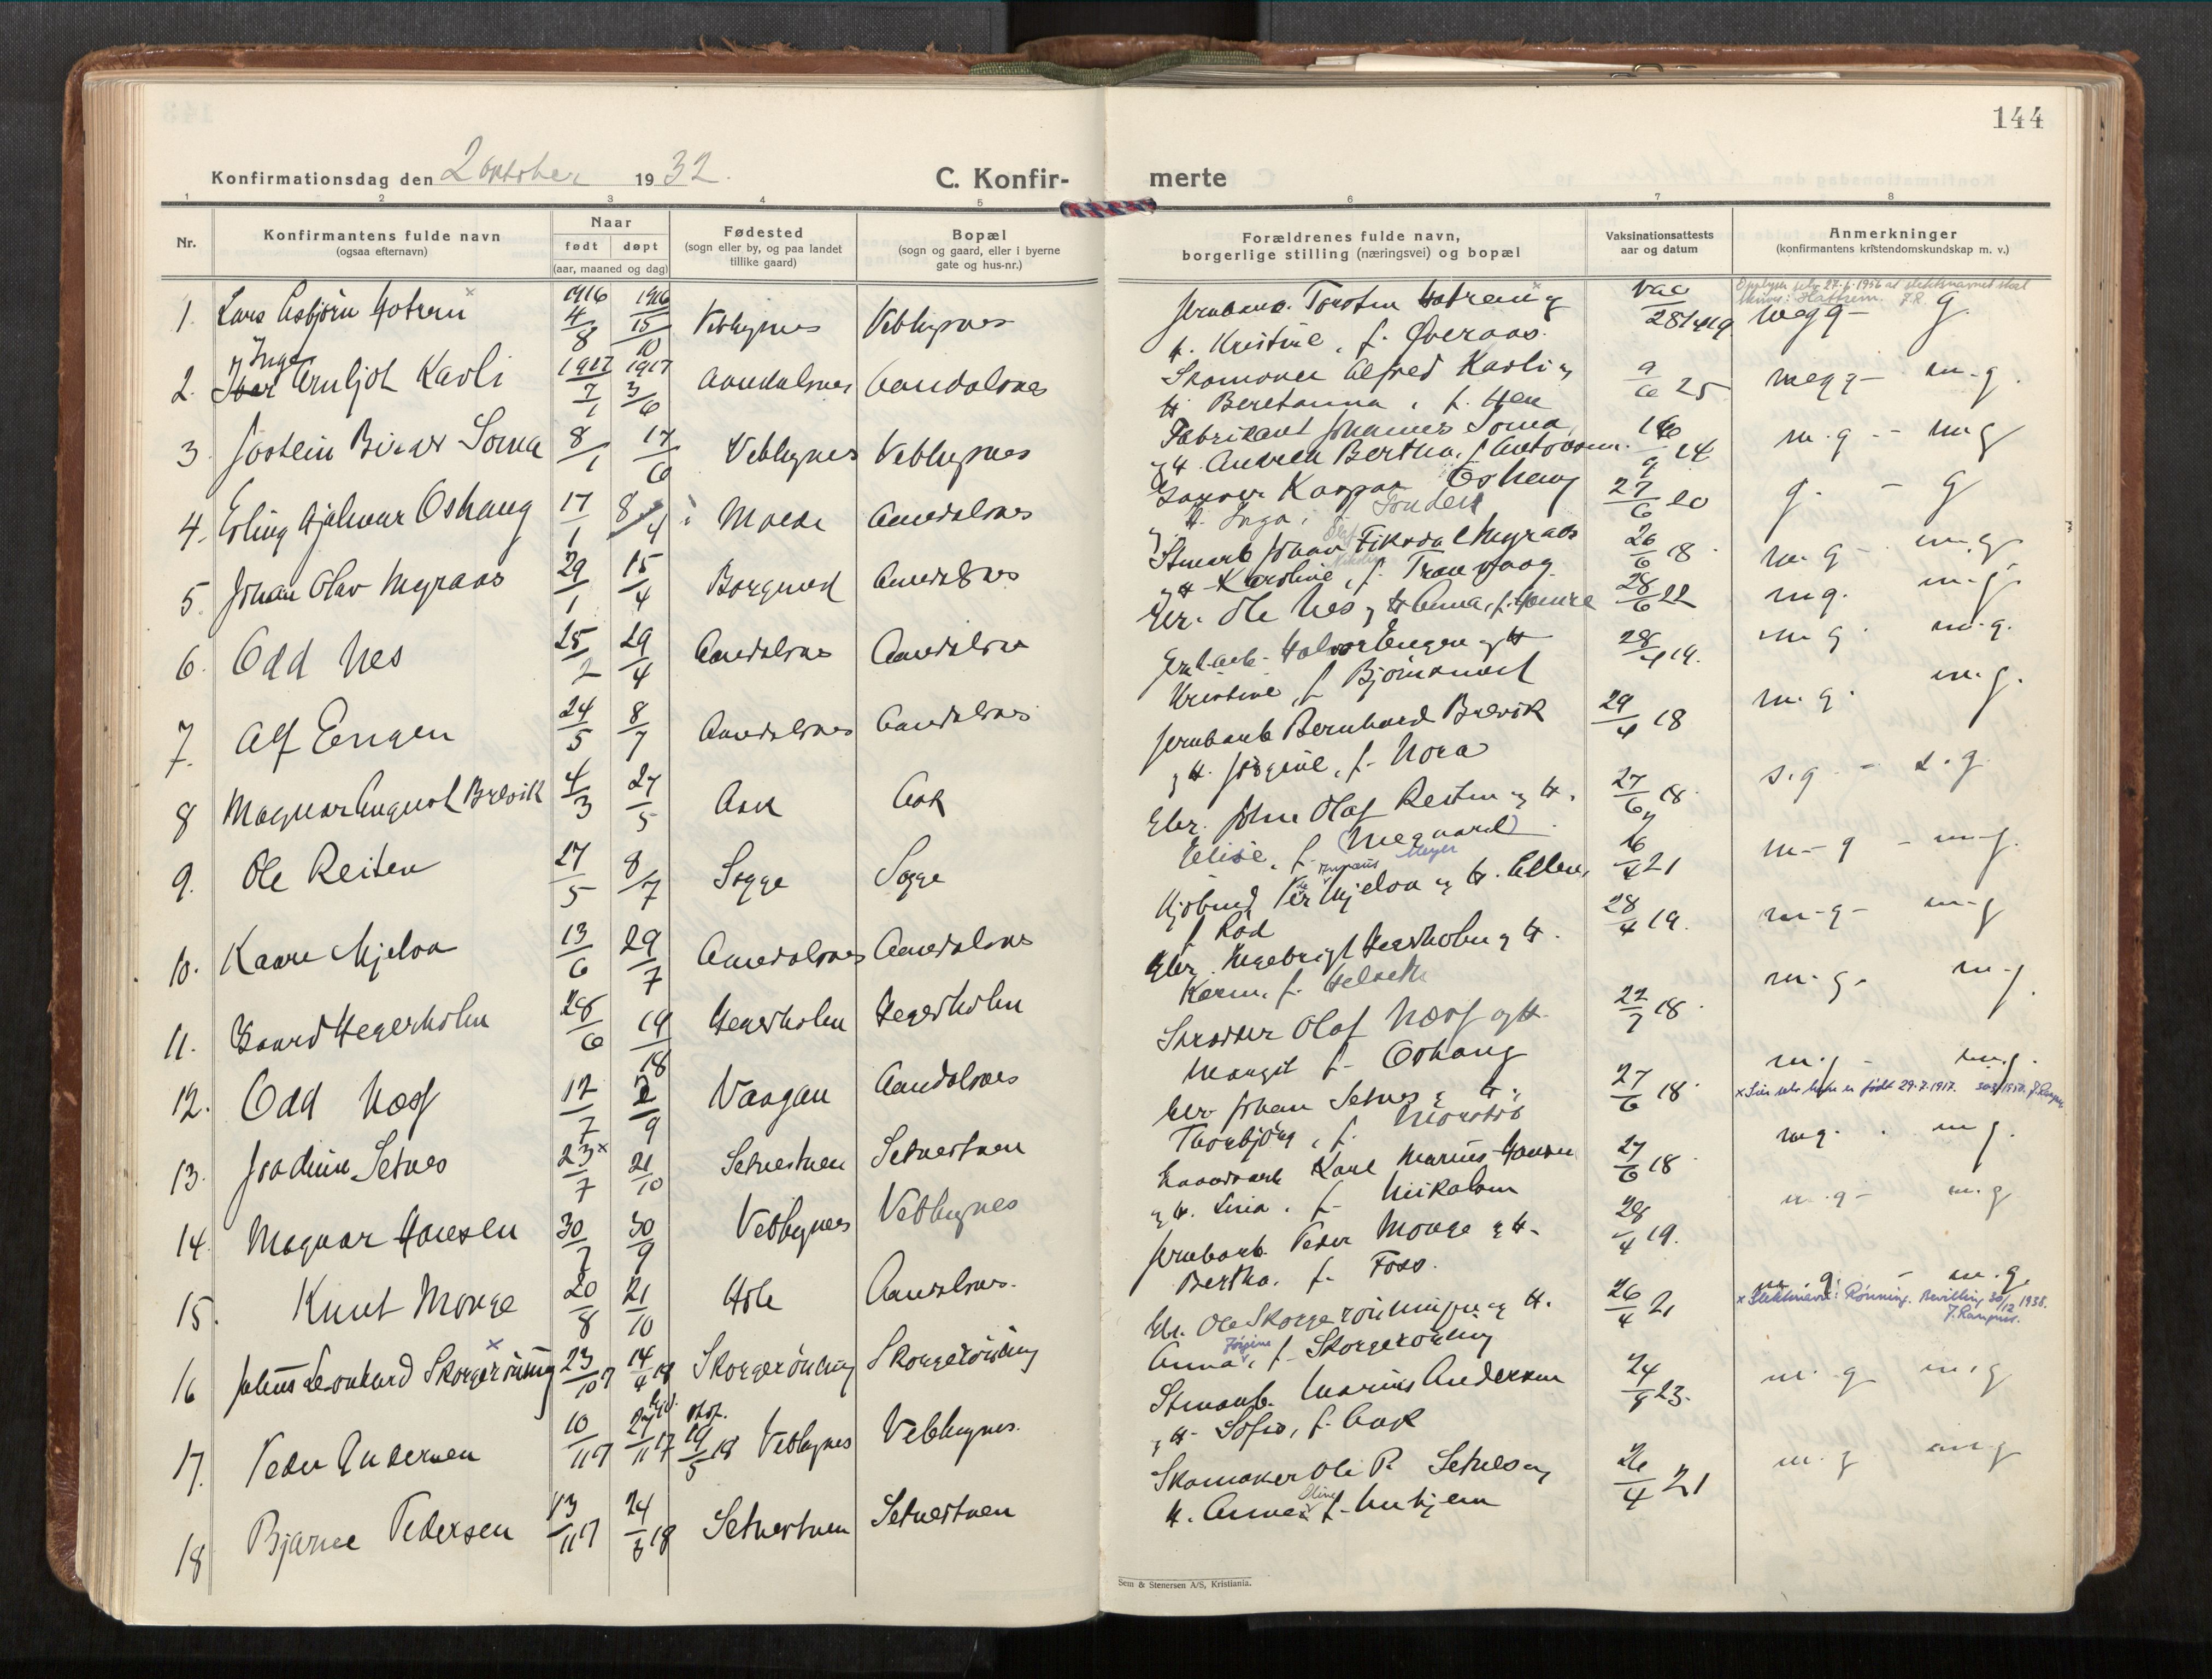 144
Konfirmationsdag den 2 oktober 1932.
C. Konfir-
merte
1 2 3 4 5 6 7 8
Nr.
Konfirmantens fulde navn
(ogsaa efternavn)
Naar
født døpt
(aar, maaned og dag)
Fødested
(sogn eller by, og paa landet
tillike gaard)
Bopæl
(sogn og gaard, eller i byerne
gate og hus-nr.)
Forældrenes fulde navn,
borgerlige stilling (næringsvei) og bopæl
Vaksinationsattests
aar og datum
Anmerkninger
(konfirmantens kristendomskundskap m. v.)
1. Lars Asbjörn Hatrem x 1916 4/8 1916 15/10 Veblugnes Veblugnes
Jernbanea. Torsten Hatrem x og vac 28/4 19 megg - g.
H. Kristine, f. Øveraas.
2. Inge Arnljot Kavli 1917 7/1 1917 3/6 Aandalsnes Aandalsnes
Skomaker Alfred Kavli og 9/6 25 megg - m.g.
H. Beretanna, f. Hen
3. Jostein Birger Soma 8/1 17/6 Veblugnes Veblugnes
Fabrikant Johannes Soma, 16/9 24 m.g - mg
og H. Andrea Bertha, f. Antonsen.
4. Erling Hjalmar Oshaug 17/1 8/4 i Molde Aandalsnes
Kaspar Oshaug 27/6 20 g. - g
og H. Inga,
5. Johan Olav Myraas 29/1 15/4 Borgund Aandalsnes
Johan Fiksdal Myraas 26/6 18 m.g - m.g
og H. Karoline, f. Tranvaag
6. Odd Nes 25/2 29/4 Aandalsnes Aandalsnes
Gbr. Ole Nes og H. Anna, f. Hamre 28/6 22 mg. m.g.
7. Alf Engen 24/5 8/7 Aandalsnes Aandalsnes
Halvor Engen og H. 28/4 19. m g. m.g.
Kristine, f. Bjørnamoel
8 Magnar August Brevik 4/3 27/5 Aak Aak
Jernbanearb Bernhard Brevik 29/4 18 m.g. m.g.
og H. Jørgine, f. Nora
9. Ole Reiten 27/5 8/7 Sogge Sogge
Gbr. John Olaf Reiten og H. 27/6 18. s.g - s.g
Elise, f. (Megaard)
10. Kaare Mjelva 13/6 29/7 Aandalsnes Aandalsnes
Kjøbmd Per Mjelva og H. Ellen, Meyer 21 m-g - m-g.
f. Rød
11. Haard Hegerholm 28/6 19/18 Hegerholm Hegerholm
Gbr. Ingebrigt Hegerholm og H. 28/4 19. m-g- m-g
Karen, f. Helseth
12. Odd Næss 17/7 2/9 Vaagan Aandalsnes
Skrædder Olaf Næss og H. 22/7 18. m.g. m.g.
Margit f. Oshaug
13. Joachim Setnes 23 x/7 21/10 Setnestuen Setnestuen
Gbr Johan Setnes og H. 27/6 18. m.g - m.g.
Thorbjörg, f.
x født 29.7.1917.
14. Magnar Hansen 30/7 30/9 Veblugnes Veblugnes
Karl Marius Hansen 27/6 18 mg. m g.
og H. Lina, f. Nikolsen
15. Knut Monge 20/8 21/10 Hole Aandalsnes.
Jernbanearb. Peder Monge og H. 28/4 19. m.g - m.g
Bertha, f. Foss.
16 Julius Leonhard Skorgerönning x 23/10 17 14/4 18 Skorgerönning Skorgerönning
Gbr. Ole Skorgerönningen og H. 26/4 21 m.g. - m.g.
Anna Jørgine, f. Skorgerönning
x Slektsnavn: Rønning. Bevilling 30/12 1938.
17. Peder Andersen 10/11 17 27/11 17 hjd. stsf. 19/5 18 Veblugnes Veblugnes.
Marius Andersen 24/9 23. m.g m.g
og H. Sofie, f. Aak
18 Bjarne Pedersen 13/11 17 24/3 18 Setnestuen Setnestuen
Skomaker Ole P. Setnes og 26/4 21 m.g m.g
H. Anne Oline f.
Sem & Stenersen A/S, Kristiania.